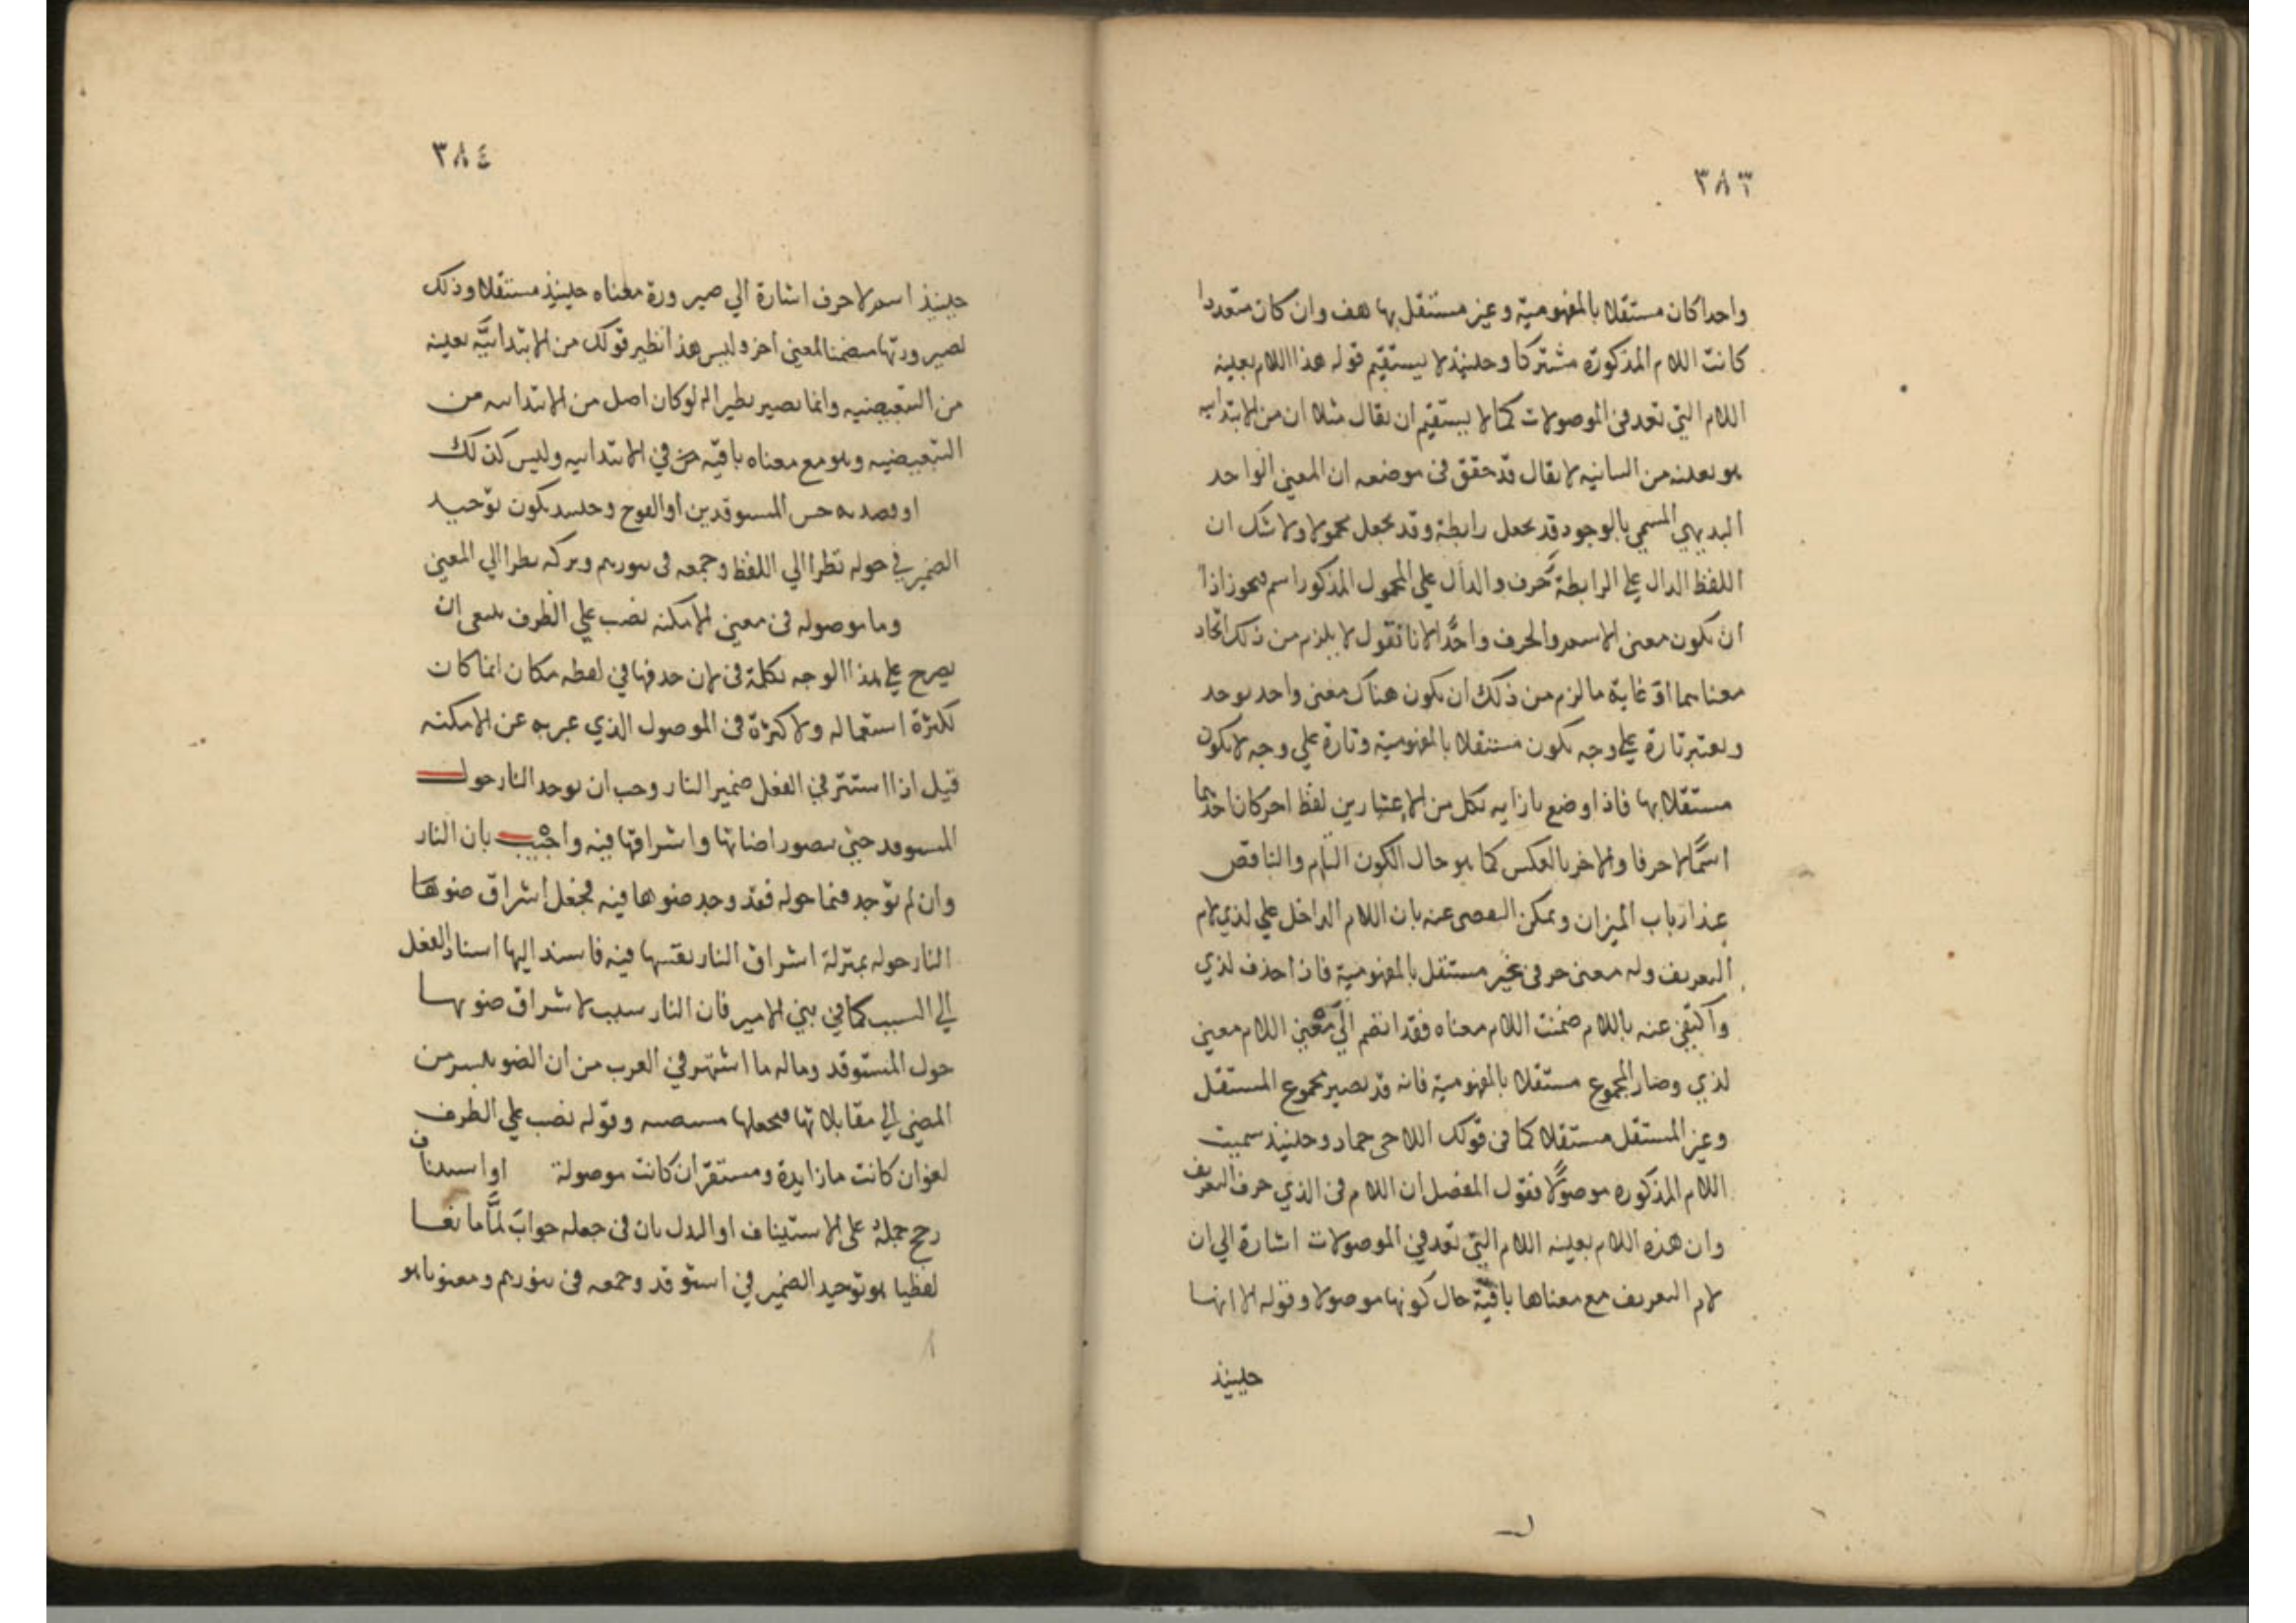 ٣٨٣
واحدا كان مستقلا بالمفهومية وغير مستقل بها هف وان كان متعددا
كانت اللام المذكورة مشتركا وحينئذ لا يستقيم قوله هذا اللام بعينه
اللام التي تعد في الموصولات كما لا يستقيم ان يقال مثلا ان من الابتدائيه
هو بعينه من البيانيه لا يقال قد حقق في موضعه ان المعني الواحد
البديهي المسمي بالوجود قد يجعل رابطة وقد يجعل محمولا ولا شك ان
اللفظ الدال علي الرابطة حرف والدال علي المحمول المذكور اسم فيجوز اذا
ان يكون معني الاسم والحرف واحدا لانا نقول لا يلزم من ذلك اتحاد
معناهما اذ غاية ما لزم من ذلك ان يكون هناك معني واحد يوجد
ويعتبر تارة علي وجه يكون مستقلا بالمفهومية وتارة علي وجه لا يكون
مستقلا بها فاذا وضع بازايه بكل من الاعتبارين لفظ اخر كان احدهما
اسما لا حرفا والاخر بالعكس كما هو حال الكون التام والناقص
عند ارباب الميزان ويمكن التفصي عنه بان اللام الداخل علي لذي لام
التعريف وله معني حرفي غير مستقل بالمفهومية فاذا حذف لذي
واكتفي عنه باللام ضمنت اللام معناه فقد انضم الي معني اللام معني
لذي وصار المجموع مستقلا بالمفهومية فانه قد يصير مجموع المستقل
وغير المستقل مستقلا كما في قولك اللاحي جماد وحينئذ سميت
اللام المذكورة موصولا فقول المفصل ان اللام في الذي حرف التعريف
وان هذه اللام بعينه اللام التي تعد في الموصولات اشارة الي ان
لام التعريف مع معناها باقية حال كونها موصولا وقوله الا انها
حينئذ
٣٨٤
حينئذ اسم لا حرف اشارة الي صيرورة معناه حينئذ مستقلا وذلك
لصيرورتها متضمنا لمعني اخر وليس هذا نظير قولك من الابتدائيه بعينه
من التبعيضيه وانما يصير نظيرا له لو كان اصل من الابتدائيه من
التبعيضيه وهو مع معناه باقيه في الابتدائيه وليس كذلك
او قصد به جنس المستوقدين او الفوج وحينئذ يكون توحيد
الضمير في حوله نظرا الي اللفظ وجمعه في بنورهم وتركهم نظرا الي المعني
وما موصوله في معني الامكنه نصب علي الظرف ينبغي ان
يصرح علي هذا الوجه بكلمة في لان حذفها في لفظه مكان انما كان
لكثرة استعماله ولا كثرة في الموصول الذي عبر به عن الامكنه
قيل اذا استتر في الفعل ضمير النار وجب ان يوجد النار حول
المستوقد حتي يتصور اضاتها واشراقها فيه واجيب بان النار
وان لم توجد فيما حوله فقد وجد ضوها فيه فجعل اشراق ضوها
النار حوله بمنزلة اشراق النار نفسها فيه فاسند اليها اسناد الفعل
الي السبب كما في بني الامير فان النار سبب لاشراق ضوها
حول المستوقد وماله ما اشتهر في العرب من ان الضو ينتشر من
المضئ الي مقابلاتها فيجعلها مستضيئه وقوله نصب علي الظرف
لغو ان كانت ما زايدة ومستقر ان كانت موصولة او استيناف
رجح جمله علي الاستيناف او البدل بان في جعله جواب لما مانعا
لفظيا هو توحيد الضمير في استوقد وجمعه في بنورهم ومعنويا هو